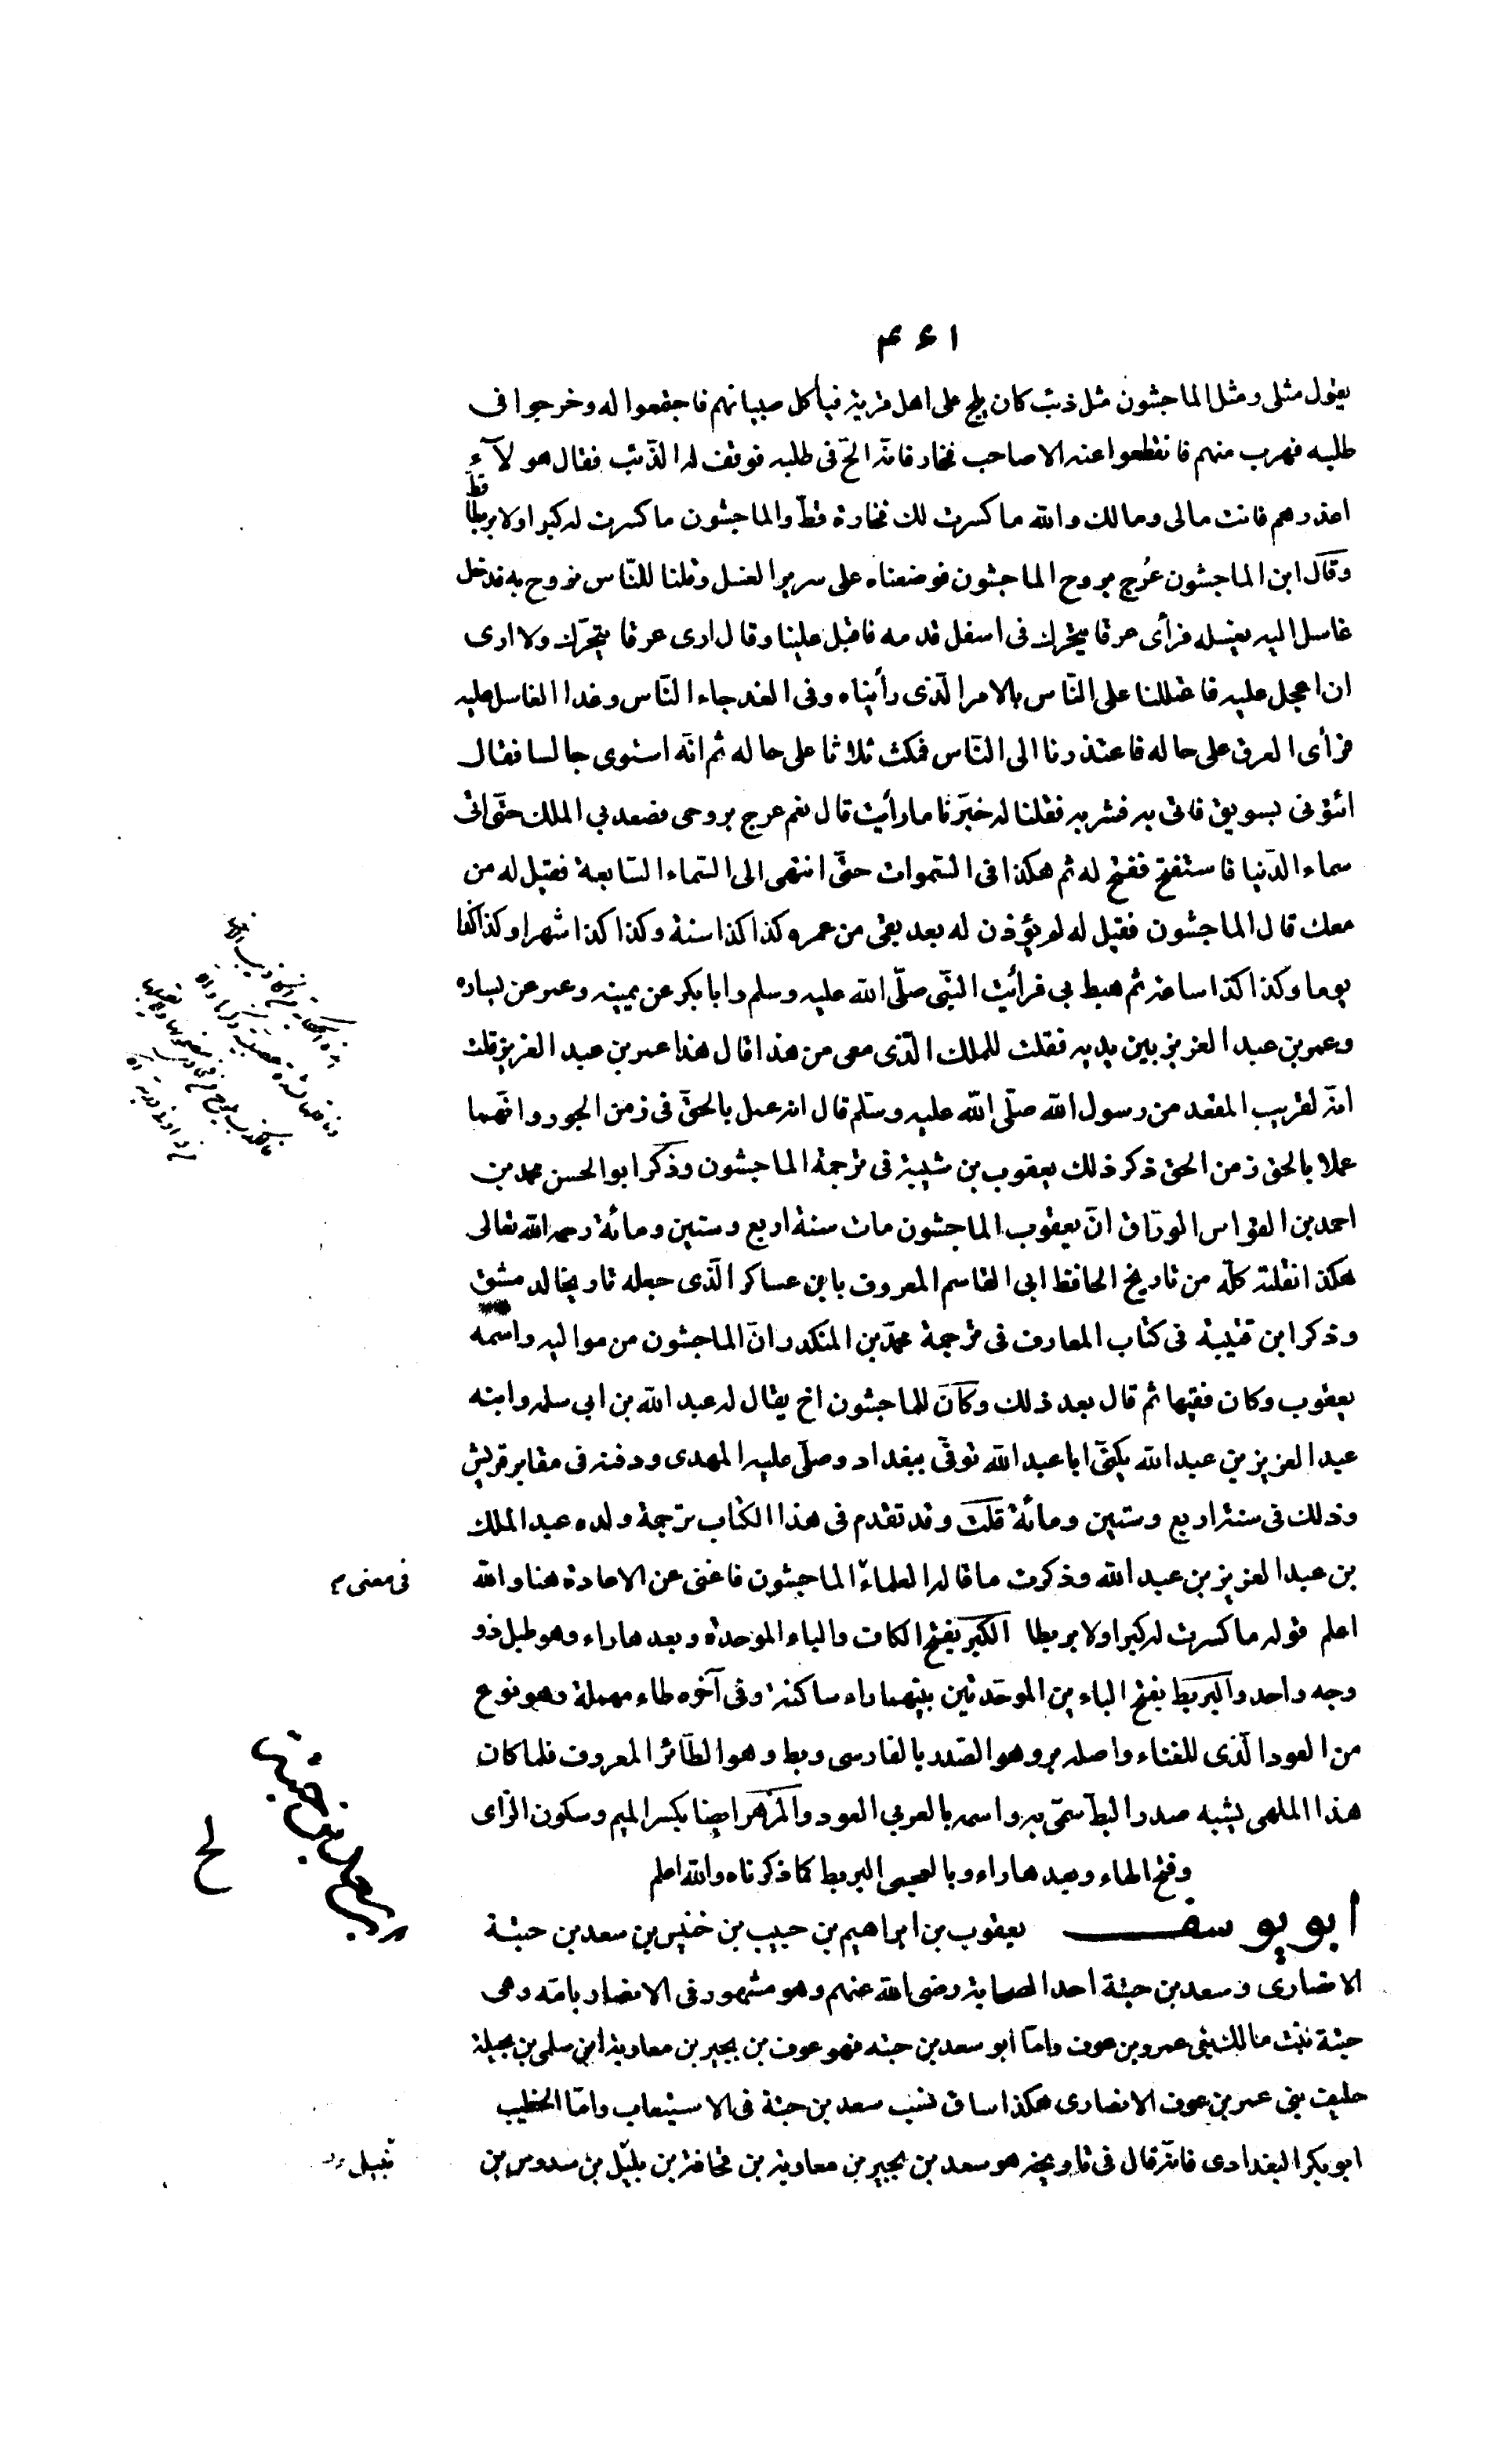 ٤٤١
يقول مثلى ومثل الماجشون مثل ذئب كان يلج على اهل قرية فيأكل صبيانهم فاجتمعوا له وخرجوا فى
طلبه فهرب منهم فانقطعوا عنه الا صاحب فخار فانّه الحّ فى طلبه فوقف له الذّئب فقال هولآء
اعذرهم فانت مالى ومالك والله ما كسرت لك فخارة قطّ والماجشون ما كسرت له كبرا ولا بربطا قطّ
وقال ابن الماجشون عُرج بروح الماجشون فوضعناه على سرير الغسل وقلنا للنّاس نروح به فدخل
غاسل اليه يغسله فرأى عرقا يتحرك فى اسفل قدمه فاقبل علينا وقال ارى عرقا يتحرّك ولا ارى
ان اعجل عليه فاعتللنا على النّاس بالامر الّذى رأيناه وفى الغد جاء النّاس وغدا الغاسل عليه
فرأى العرق على حاله فاعتذرنا الى النّاس فمكث ثلاثا على حاله ثم انّه استوى جالسا فقال
ائتونى بسويق فاتى به فشربه فقلنا له خبّرنا ما رأيت قال نعم عرج بروحى فصعد بي الملك حتّى اتى
سماء الدّنيا فاستفتح ففتح له ثم هكذا فى السّموات حتّى انتهى الى السّماء السّابعة فقيل له من
معك قال الماجشون فقيل له لم يؤذن له بعد بقى من عمره كذا كذا سنة وكذا كذا شهرا وكذا كذا
يوما وكذا كذا ساعة ثم هبط بى فرأيت النبّى صلّى الله عليه وسلم وابا بكر عن يمينه وعمر عن يساره
وعمر بن عبد العزيز بين يديه فقلت للملك الّذى معى من هذا قال هذا عمر بن عبد العزيز قلت
انّه لقريب المقعد من رسول الله صلّى الله عليه وسلّم قال انه عمل بالحقّ فى زمن الجور وانّهما
عملا بالحق زمن الحق ذكر ذلك يعقوب بن شيبة فى ترجمة الماجشون وذكر ابو الحسن محمد بن
احمد بن القواس الورّاق انّ يعقوب الماجشون مات سنة اربع وستين ومائة رحمه الله تعالى
هكذا نقلته كلّه من تاريخ الحافظ ابى القاسم المعروف بابن عساكر الّذى جعله تاريخا لدمشق
وذكر ابن قتيبة فى كتاب المعارف فى ترجمة محمّد بن المنكدر انّ الماجشون من مواليه واسمه
يعقوب وكان فقيها ثم قال بعد ذلك وكان للماجشون اخ يقال له عبد الله بن ابى سلمه وابنه
عبد العزيز بن عبد الله يكنّى ابا عبد الله توفّى ببغداد وصلّى عليه المهدى ودفنه فى مقابر قريش
وذلك فى سنة اربع وستين ومائة قلت وقد تقدم فى هذا الكتاب ترجمة ولده عبد الملك
بن عبد العزيز بن عبد الله وذكرت ما قاله العلماء الماجشون فاغنى عن الاعادة هنا والله
فى معنى
اعلم قوله ما كسرت له كبرا ولا بربطا الكبر بفتح الكاف والباء الموحدة وبعدها راء وهو طبل ذو
وجه واحد والبربط بفتح الباءين الموحّدتين بينهما راء ساكنة وفى آخره طاء مهملة وهو نوع
من العود الّذى للغناء واصله بر وهو الصّدر بالفارسى وبط وهو الطّائر المعروف فلما كان
هذا الملهى يشبه صدر البطّ سمّى به واسمه بالعربى العود والمزهر ايضا بكسر الميم وسكون الزّاى
وفتح الهاء وبعدها راء وبالعجمى البربط كما ذكرناه والله اعلم
ابو يوسف يعقوب بن ابراهيم بن حبيب بن خنيس بن سعد بن حبتة
الانصارى وسعد بن حبتة احد الصحابة رضى الله عنهم وهو مشهور فى الانصار بامّه وهى
حبتة بنت مالك بن عمرو بن عوف وامّا ابو سعد بن حبته فهو عوف بن بجير بن معاوية ابن سلمى بن بجيلة
حليف بنى عمرو بن عوف الانصارى هكذا ساق نسب سعد بن حبتة فى الاستيعاب وامّا الخطيب
ابو بكر البغدادى فانّه قال فى تاريخه هو سعد بن بجير بن معاوية بن قحافة بن بليّل بن سدوس بن